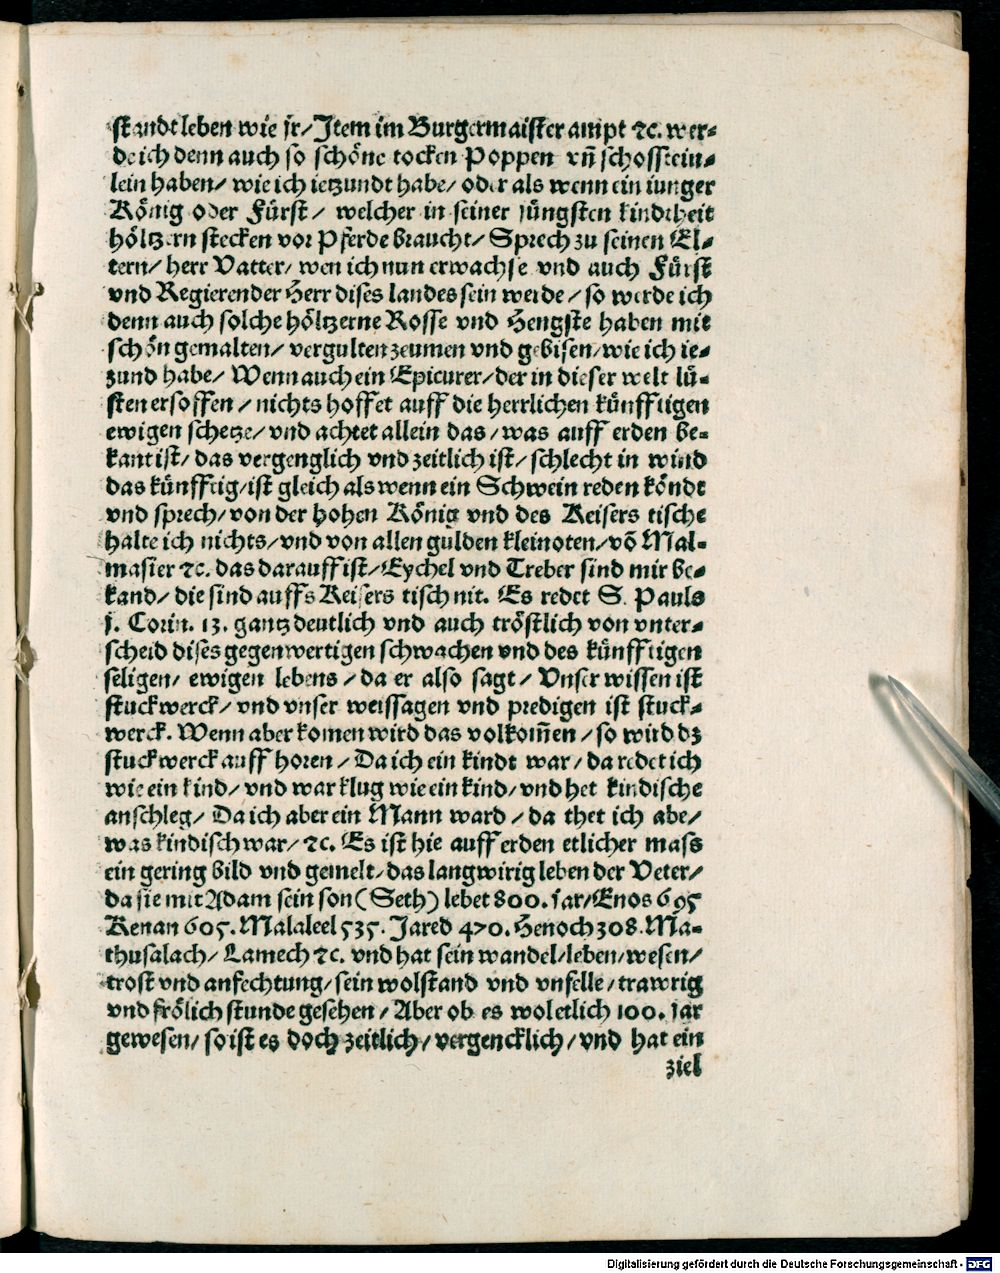 standt leben wie jr/ Jtem im Burgermaister ampt ꝛc. wer-
de ich denn auch so schöne tocken Poppen vñ schosstein-
lein haben/ wie ich ietzundt habe/ oder als wenn ein iunger
König oder Fürst/ welcher in seiner jüngsten kindtheit
höltzern stecken vor Pferde braucht/ Sprech zu seinen El-
tern/ herr Vatter/ wen ich nun erwachse vnd auch Fürst
vnd Regierender Herr dises landes sein werde/ so werde ich
denn auch solche höltzerne Rosse vnd Hengste haben mit
schön gemalten/ vergulten zeumen vnd gebisen/ wie ich ie-
zund habe/ Wenn auch ein Epicurer/ der in dieser welt lü-
sten ersoffen/ nichts hoffet auff die herrlichen künfftigen
ewigen schetze/ vnd achtet allein das/ was auff erden be-
kant ist/ das vergenglich vnd zeitlich ist/ schlecht in wind
das künfftig/ ist gleich als wenn ein Schwein reden köndt
vnd sprech/ von der hohen König vnd des Keisers tische
halte ich nichts/ vnd von allen gulden kleinoten/ võ Mal-
masier ꝛc. das darauff ist/ Eychel vnd Treber sind mir be-
kand/ die sind auffs Keisers tisch nit. Es redet S. Pauls
j. Corin. 13. gantz deutlich vnd auch tröstlich von vnter-
scheid dises gegenwertigen schwachen vnd des künfftigen
seligen/ ewigen lebens/ da er also sagt/ Vnser wissen ist
stuckwerck/ vnd vnser weissagen vnd predigen ist stuck-
werck. Wenn aber komen wird das volkom̃en/ so wird dz
stuckwerck auff horen/ Da ich ein kindt war/ da redet ich
wie ein kind/ vnd war klug wie ein kind/ vnd het kindische
anschleg/ Da ich aber ein Mann ward/ da thet ich abe/
was kindisch war/ ꝛc. Es ist hie auff erden etlicher mass
ein gering bild vnd gemelt/ das langwirig leben der Veter/
da sie mit Adam sein son (Seth) lebet 800. jar/ Enos 695
Kenan 605. Malaleel 535. Jared 470. Henoch 308. Ma-
thusalach/ Lamech ꝛc. vnd hat sein wandel/ leben/ wesen/
trost vnd anfechtung/ sein wolstand vnd vnfelle/ trawrig
vnd frölich stunde gesehen/ Aber ob es wol etlich 100. jar
gewesen/ so ist es doch zeitlich/ vergencklich/ vnd hat ein
ziel
Digitalisierung gefördert durch die Deutsche Forschungsgemeinschaft - DFG